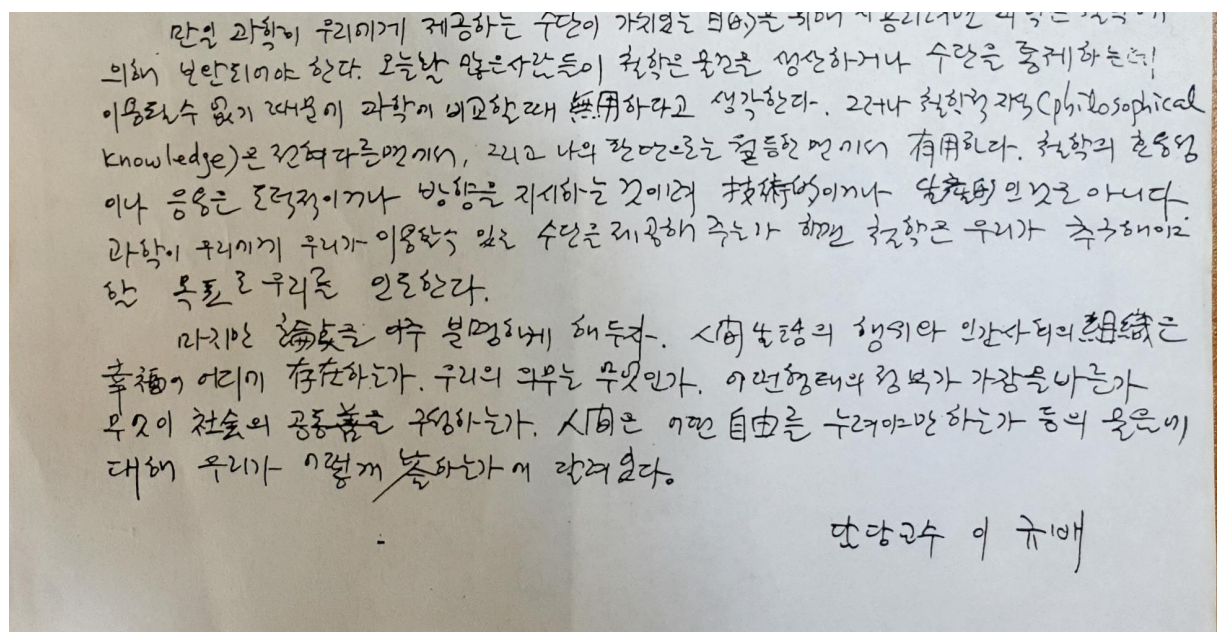 만일 과학이 우리에게 제공하는 수단이 가치있는 目的을 위해 사용되려면 과학은 철학에
의해 보완되어야 한다. 오늘날 많은사람들이 철학은 물건을 생산하거나 수단을 통제하는데
이용될수 없기 때문에 과학에 비교할때 無用하다고 생각한다. 그러나 철학적 지식(philosophical
knowledge)은 전혀다른면에서, 그리고 나의 판단으로는 월등한 면에서 有用하다. 철학의 효용성
이나 응용은 도덕적이거나 방향을 지시하는 것이며 技術的이거나 生産的인것은 아니다.
과학이 우리에게 우리가 이용할수 있는 수단을 제공해 주는가 하면 철학은 우리가 추구해야만
할 목표로 우리를 인도한다.
마지막 論点을 아주 분명하게 해두자. 人間 生活의 행위와 인간사회의 組織은
幸福이 어디에 存在하는가. 우리의 의무는 무엇인가. 어떤형태의 정부가 가장올바른가
무엇이 社会의 공동善을 구성하는가. 人間은 어떤 自由를 누려야만 하는가 등의 물음에
대해 우리가 어떻게 答하는가에 달려있다.
담당교수 이 규배